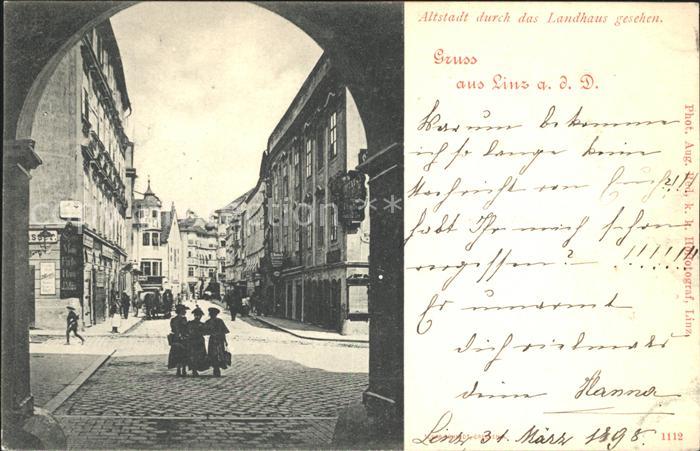 Altstadt durch das Landhaus gesehen.
Gruss
aus Linz a. d. D.
Warum bekomme
ich so lange keine
Nachricht von Euch?!!!
habt Ihr mich schon
vergessen? !!!!!!!
Es umarmt
dich vielmals
deine Hanna
Linz, 31 März 1898.
1112
Phot. Aug. k. k. Hof Linz.